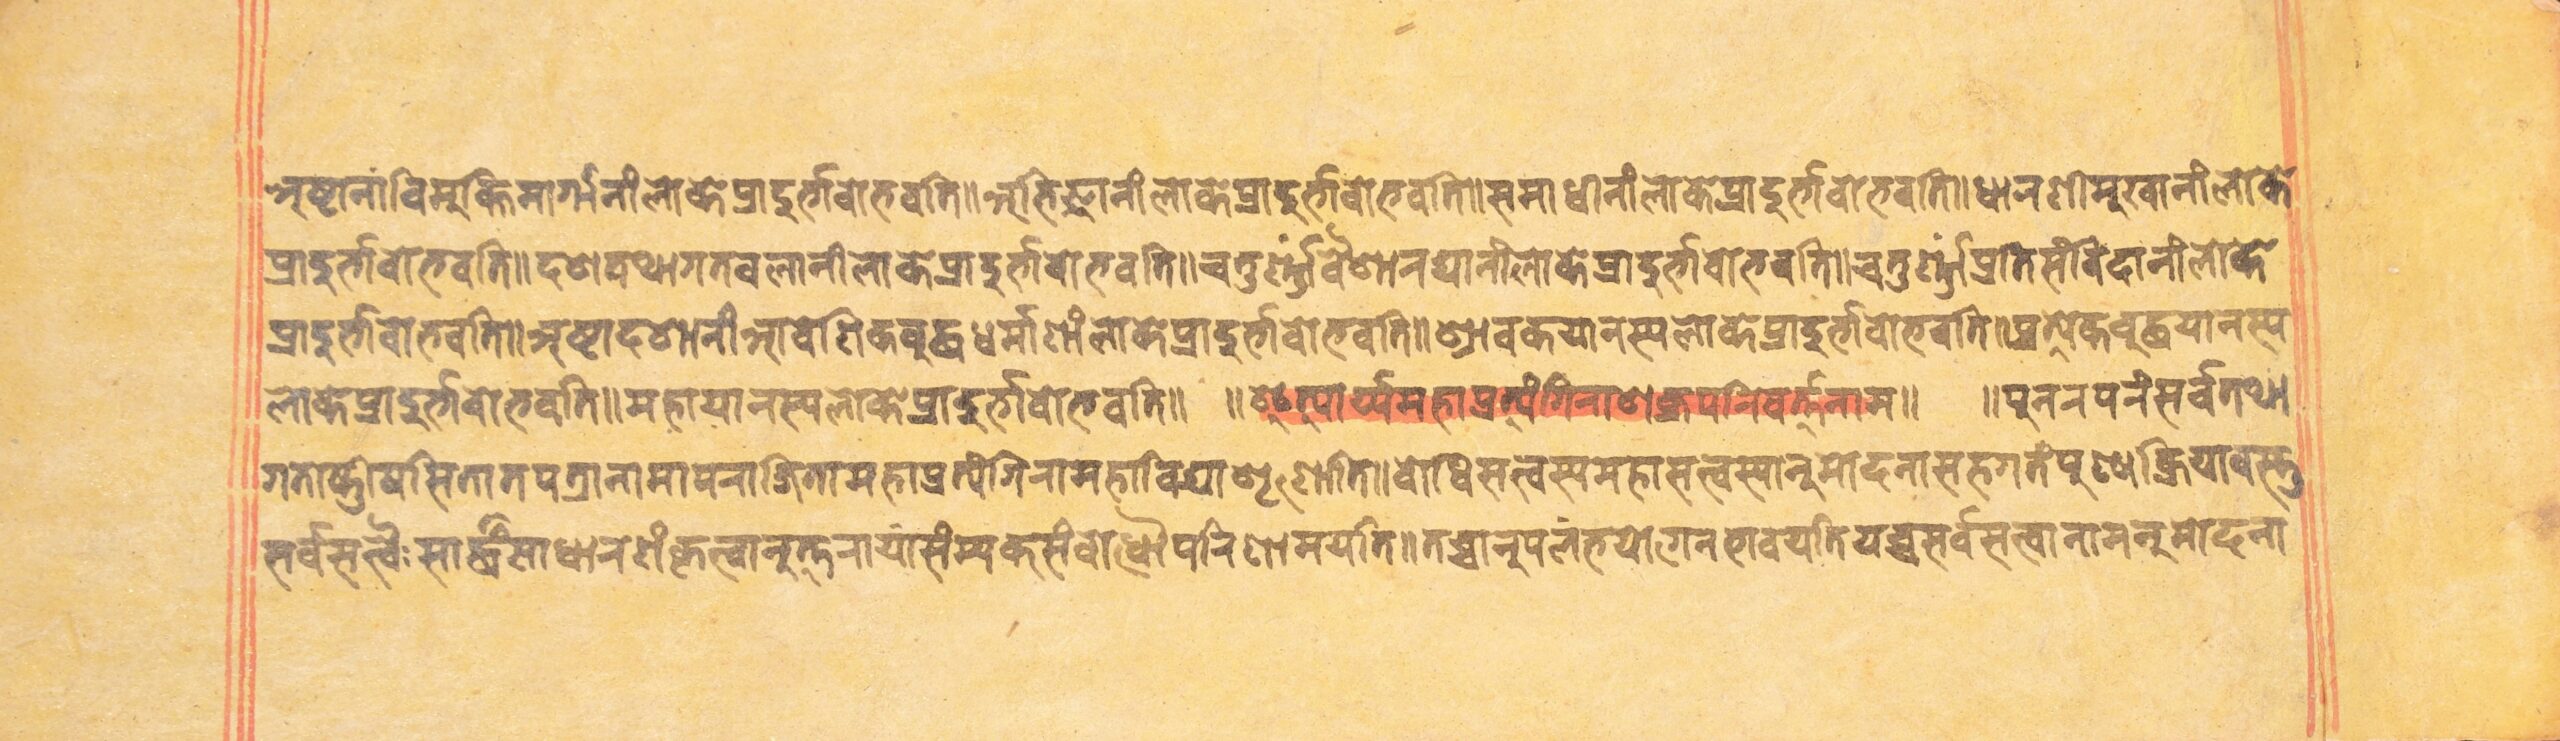 अष्टानां विमुक्तिमार्गानां लोके प्रादुर्भावो भवति॥ अभिज्ञानां लोके प्रादुर्भावो भवति॥ समाधीनां लोके प्रादुर्भावो भवति॥ धारणीमुखानां लोके
प्रादुर्भावो भवति॥ दशतथागतबलानां लोके प्रादुर्भावो भवति॥ चतुर्ण्णां वैशारद्यानां लोके प्रादुर्भावो भवति॥ चतुर्ण्णां प्रतिसंविदानां लोके
प्रादुर्भावो भवति॥ अष्टादशानां आवेणिकबुद्धधर्माणां लोके प्रादुर्भावो भवति॥ श्रावकयानस्य लोके प्रादुर्भावो भवति॥ प्रत्येकबुद्धयानस्य
लोके प्रादुर्भावो भवति॥ महायानस्य लोके प्रादुर्भावो भवति॥ ॥ इत्यार्य्यमहाप्रत्यंगिरा शक्रपरिवर्त्त नाम॥ ॥ पुनरपरं सर्वतथा
गतोष्णीषसितातपत्रानामापराजितामहाप्रत्यंगिरामहाविद्या शृणोति॥ बोधिसत्त्वस्य महासत्त्वस्यानुमोदनासहगतं पुण्यक्रियावस्तु
सर्वसत्त्वैः सार्द्धं साधारणं कृत्वानुत्तरायां संम्यक्संबोधौ परिणामयति॥ तच्चानुपलंभयोगेन भावयति यच्च सर्वसत्त्वानामनुमोदना